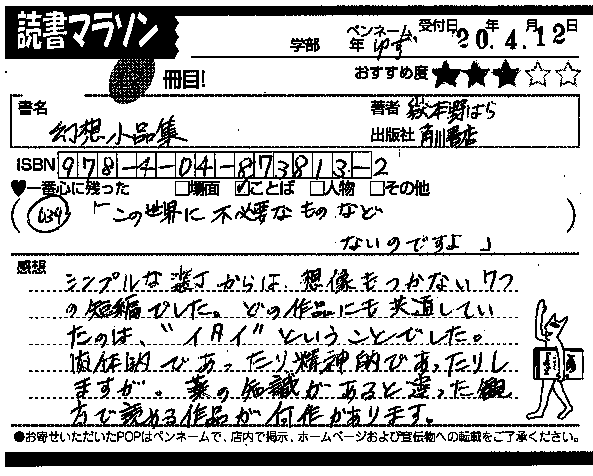 読書マラソン
冊目!
学部 年 ペンネーム ゆず 受付日 '20年4月12日
おすすめ度 ★★★☆☆
書名 幻想小品集
著者 嶽本野ばら
出版社 角川書店
ISBN 978-4-04-873813-2
♥一番心に残った □場面 ☑ことば □人物 □その他
「この世界に不必要なものなど
ないのですよ」
感想
シンプルな装丁からは想像もつかない7つ
の短編でした。どの作品にも共通してい
たのは、"イタイ"ということでした。
肉体的であったり精神的であったりし
ますが。薬の知識があると違った観
方で読める作品が何作かあります。
●お寄せいただいたPOPはペンネームで、店内で掲示、ホームページおよび宣伝物への転載をご了承ください。